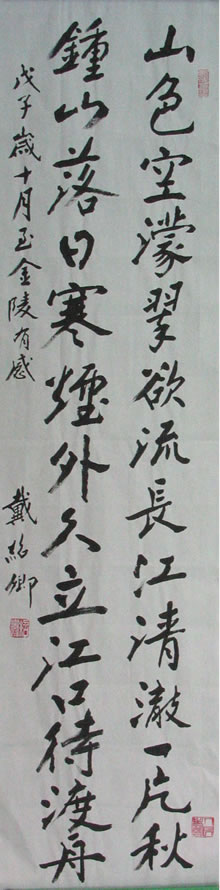 山色空濛翠欲流長江清澈一片秋
鍾山落日寒煙外久立江口待渡舟
戊子歲十月至金陵有感
戴紹卿